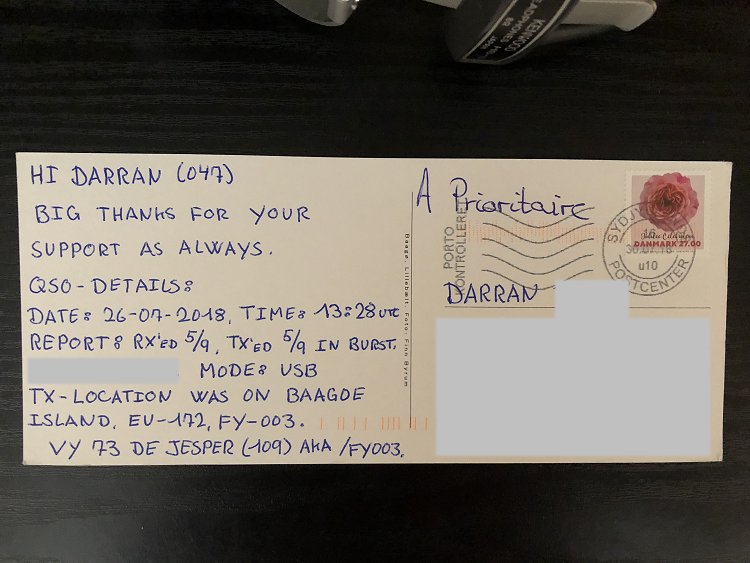 KENWOOD
HI DARRAN (047)
BIG THANKS FOR YOUR
SUPPORT AS ALWAYS.
QSO-DETAILS:
DATE: 26-07-2018, TIME: 13:28 UTC
REPORT: RX'ED 5/9, TX'ED 5/9 IN BURST,
MODE: USB
TX-LOCATION WAS ON BAAGOE
ISLAND, EU-172, FY-003.
VY 73 DE JESPER (109) AKA /FY003.
Baagø, Lillebælt. Foto: Finn Byrum
A Prioritaire
PORTO
KONTROLLERET
DANMARK 27.00
30.07.18
u10
POSTCENTER
DARRAN